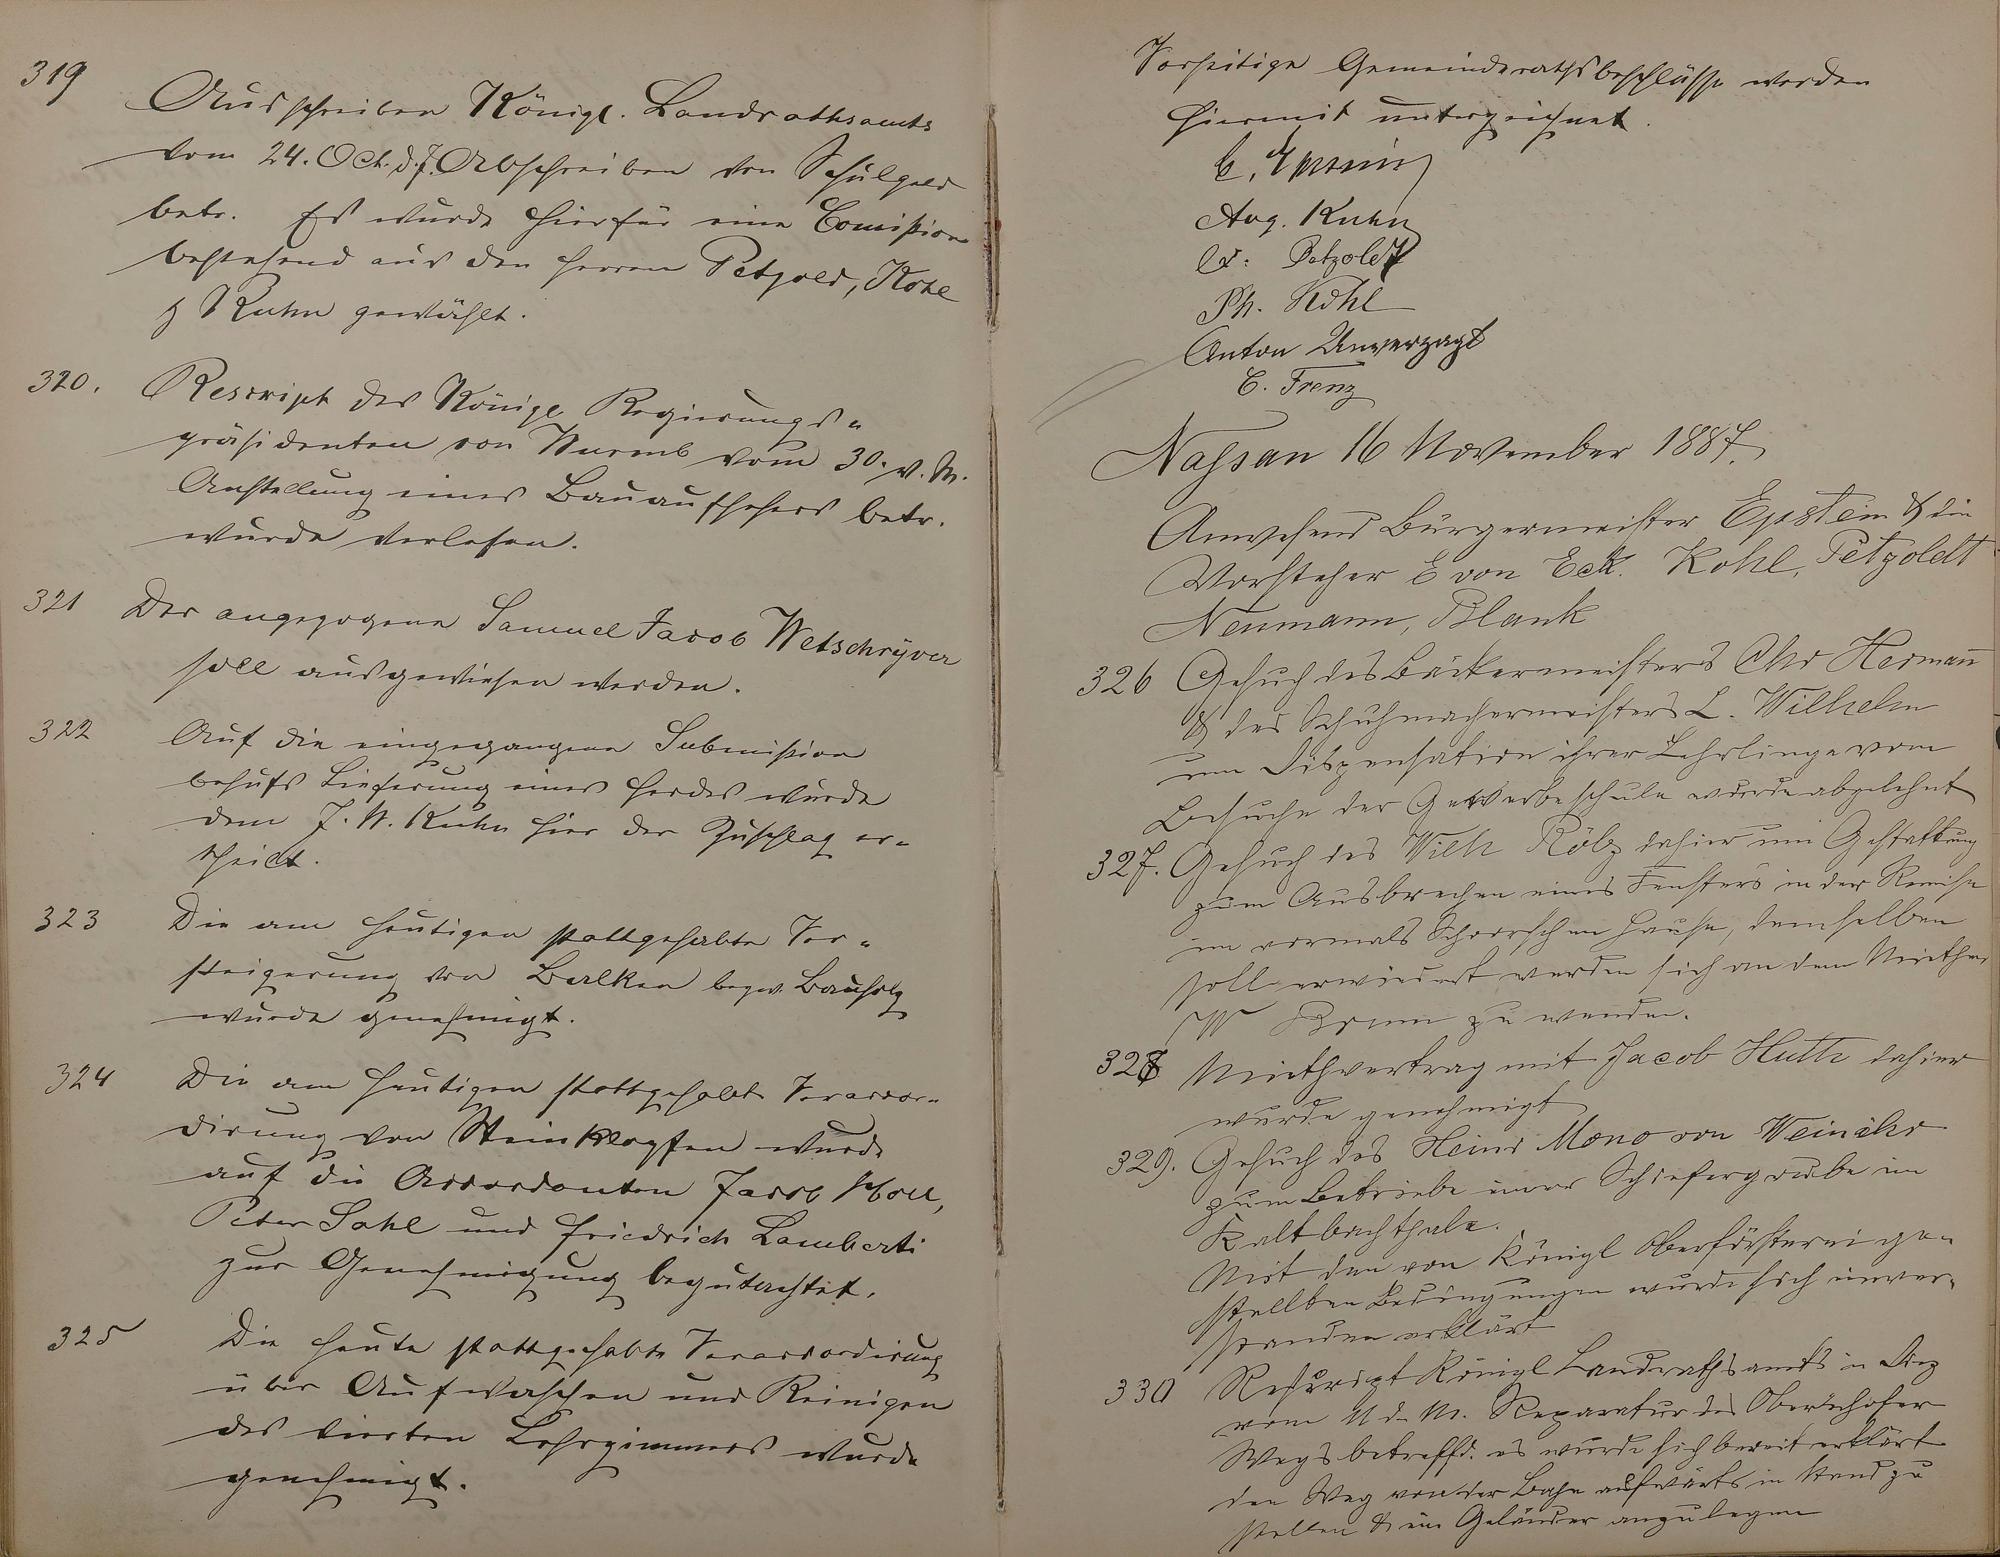 319
Ausschreiben Königl. Landrathsamts
vom 24. Oct. d. J. Abschreiben von Schulgeld
betr. Es wurde hierfür eine Comißion
bestehend aus den Herren Petzold, Kohl
& Kuhn gewählt.
320. Rescript des Königl Regierungs-
präsidenten von Wurmb vom 30. v. M.
Anstellung eines Bauaufsehers betr.
wurde verlesen.
321 Der angezogene Samuel Jacob Wetschryver
soll ausgewiesen werden.
322 Auf die eingegangene Submißion
behufs Lieferung eines Herdes wurde
dem J. W. Kuhn hier der Zuschlag er-
theilt.
323 Die am heutigen stattgehabte Ver-
steigerung von Balken bezw. Bauholz
wurde genehmigt.
324 Die am heutigen stattgehabte Veraccor-
dirung von Steinklopfen wurde
auf die Accordanten Jacob Noll,
Peter Sahl und Friedrich Lamberti
zur Genehmigung begutachtet.
325 Die heute stattgehabte Veraccordirung
über Aufwaschen und Reinigen
des vierten Lehrzimmers wurde
genehmigt.
Vorseitige Gemeinderathsbeschlüsse werden
hiermit unterzeichnet.
Aug. Kuhn
Petzoldt
Ph. Kohl
Anton Unverzagt
C. Frenz
Nassau 16 November 1887.
Anwesend Bürgermeister Epstein & die
Vorsteher E von Eck. Kohl, Petzoldt
Neumann, Blank
326 Gesuch des Bäckermeisters Chr Hermann
& des Schuhmachermeisters L. Wilhelm
um Dispensation ihrer Lehrlinge vom
Besuche der Gewerbeschule wurde abgelehnt
327. Gesuch des Wilh Rölz dahier um Gestattung
zum Ausbrechen eines Fensters in der Remise
im vormals Schorrschen Hause, demselben
soll erwiedert werden sich an den Miether
W zu wenden.
328 Miethvertrag mit Jacob Huth dahier
wurde genehmigt
329. Gesuch des Heinr Mono von Weinähr
zum Betriebe einer Schiefergrube im
Kaltbachthale.
Mit den von Königl Oberförsterei ge-
stellten Bedingungen wurde sich einver-
standen erklärt
330 Rescript Königl Landrathsamts in Diez
vom 11 d. M. Reparatur des Obernhofer
Wegs betreffd. es wurde sich bereit erklärt
den Weg von der Bahn aufwärts in Stand zu
stellen & ein Geländer anzulegen